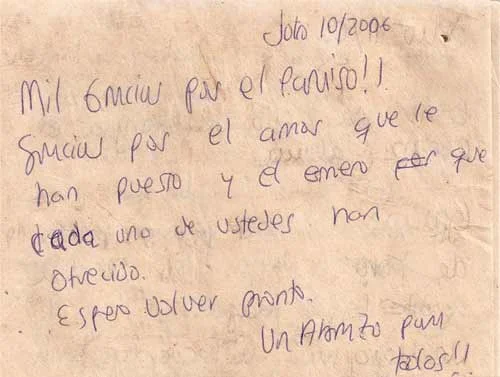 10/2006
Mil Gracias por el Paraiso!!
Gracias por el amor que le
han puesto y el esmero por que
cada uno de ustedes han
ofrecido.
Espero volver pronto.
Un Abrazo para
todos!!